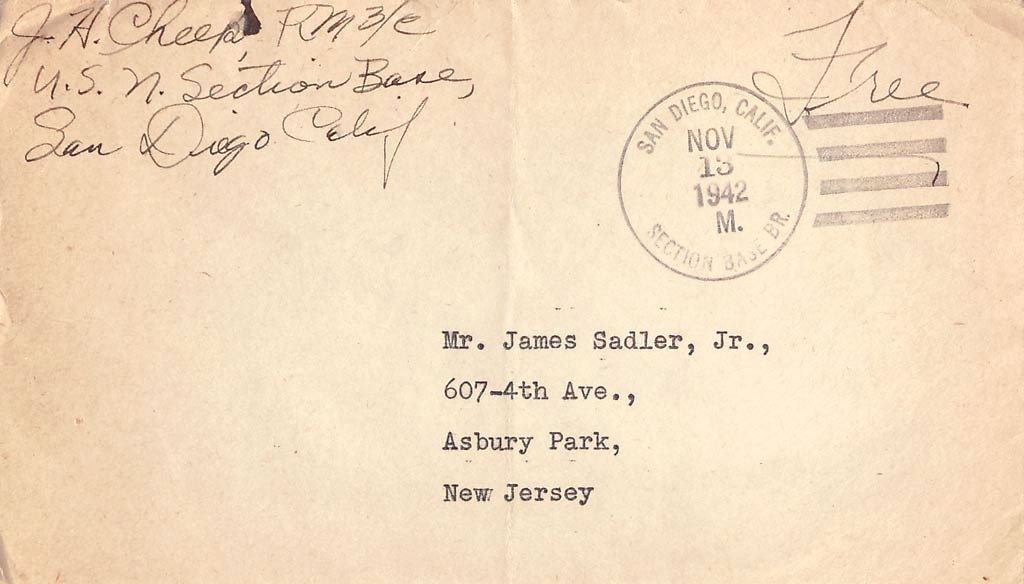 J. A. Cheep, RM3/c
U.S. N. Section Base,
San Diego Calif
Free
SAN DIEGO, CALIF.
NOV
13
1942
M.
SECTION BASE BR.
Mr. James Sadler, Jr.,
607-4th Ave.,
Asbury Park,
New Jersey